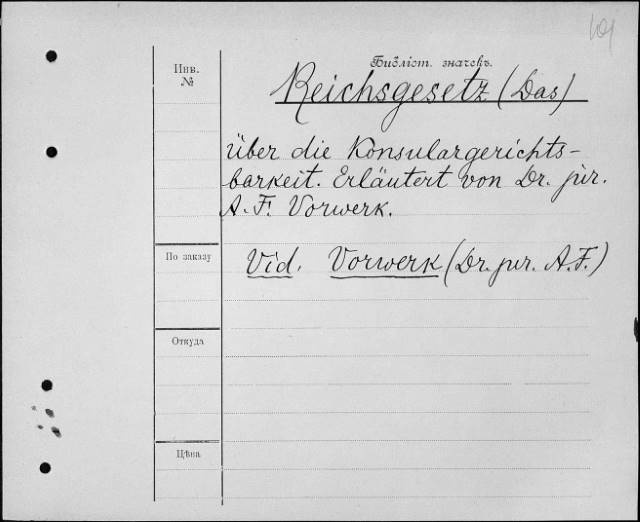 101
Библіот. значекъ.
Инв.
№
Reichsgesetz (Das)
über die Konsulargerichts-
barkeit. Erläutert von Dr. jur.
A. F. Vorwerk.
По заказу
Vid. Vorwerk (Dr. jur. A. F.)
Откуда
Цѣна